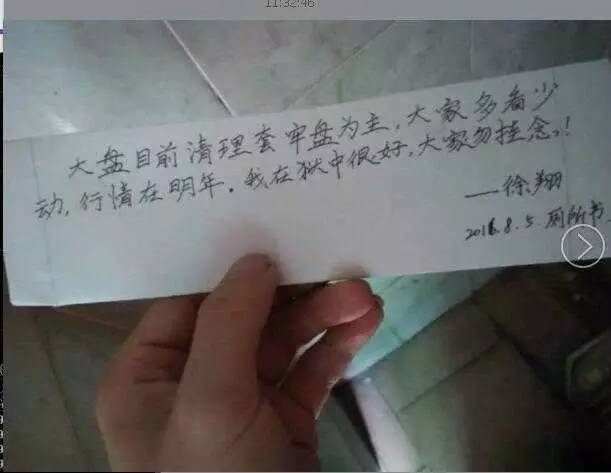 11:32:46
大盘目前清理套牢盘为主,大家多看少
动,行情在明年。我在狱中很好,大家勿挂念!
——徐翔
2016.8.5.厕所书